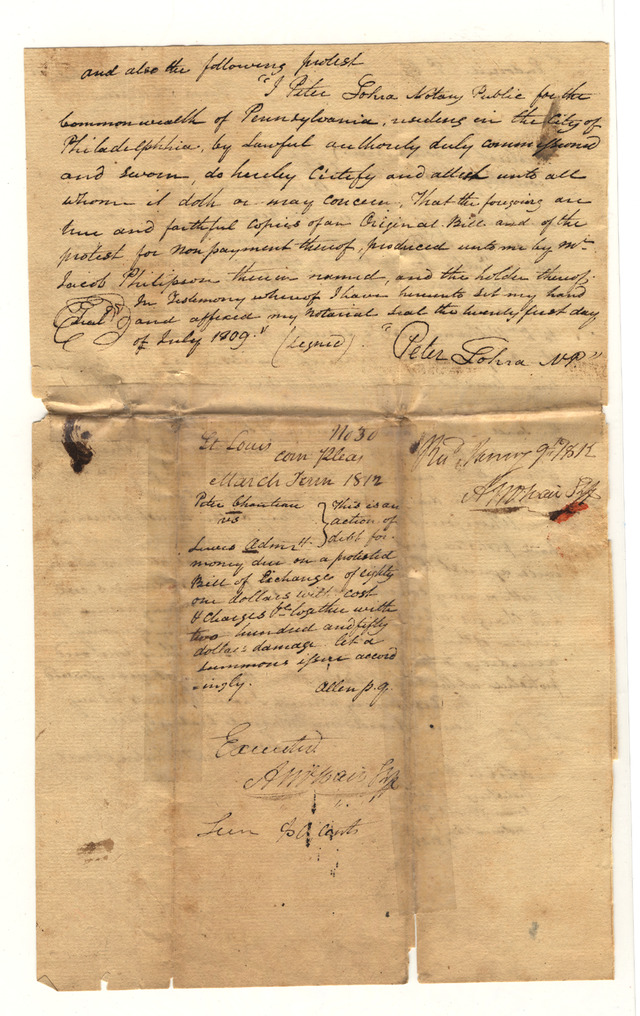 and also the following protest
"I Peter Lohra Notary Public for the
Commonwealth of Pennsylvania, residing in the City of
Philadelphhia, by lawful authority duly commissioned
and sworn, do hereby Certify and attest unto all
whom it doth or may concern, That the foregoing are
true and faithful Copies of an Original Bill and of the
protest for nonpayment thereof, produced unto me by Mr
Jacob Philipson therein named, and the holder thereof.
In Testimony whereof I have hereunto set my hand
(Seal) and affixed my Notarial Seal the twenty first day
of July 1809." (Signed). "Peter Lohra NP"
No 30
St Louis
com Pleas
March Term 1812
Peter Chouteau
vs
Lewis Admr
This is an
action of
debt for
money due on a protested
Bill of Exchange of eighty
one dollars with cost
& Charges &c together with
two hundred and fifty
dollars damage Let a
summons issue accord
ingly.
Allen p. q.
Executed
A McNair Shff
90 cents
Recd January 9th 1812
A McNair Shff